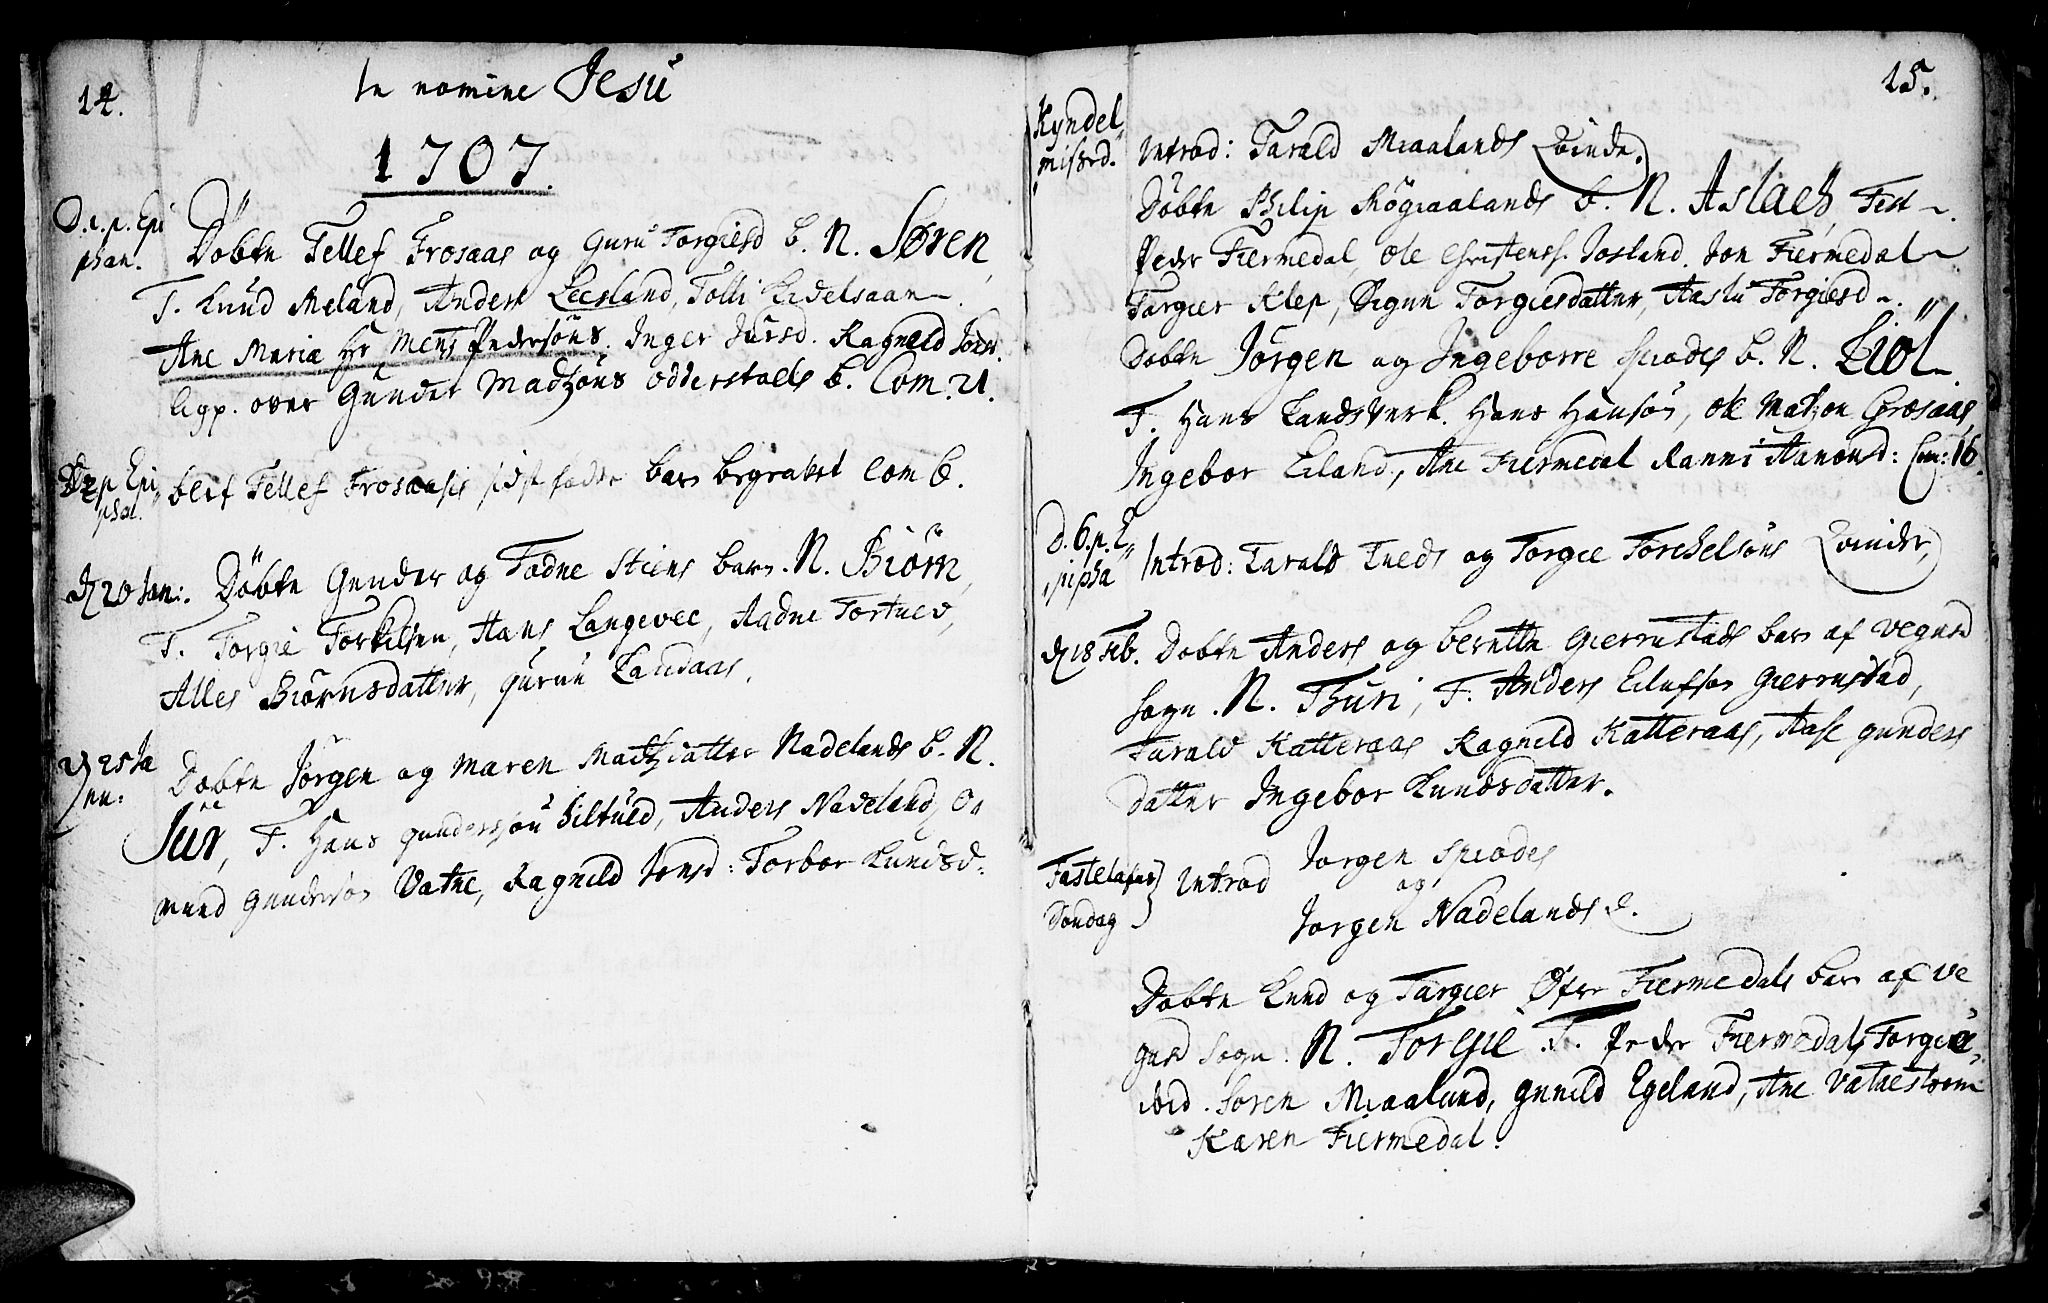 14.
In nomine Jesu
1707.
D. 1. p. Epi
phan.
Döbte Tellef Frosaas og Guru Torgiesd b. N. Søren,
T. Knud Meland, Anders Leesland, Tolli Eidelsaan.
Ane Maria Hr Mens Pedersøns. Inger Jursd. Ragneld Jonsd.
Gunder Madzøns Odderstoels b. Com. 21.
D 2 p Epi
phan.
blef Tellef Frosaasis sidst fødde barn begravet Com 6.
d 20 Jan:.
Döbte Gunder og Todne Stiens barn. N. Biørn,
T. Torgie Torkelsen, Hans Langevec, Aadne Tortuev,
Alles Biørnsdatter, guruu Landaas.
d 25 Ja
nu:
Døbte Jørgen og Maren Madtzdatter Nadelands b. N.
Jur, T. Hans gundersøn Siltued, Anders Nadeland, O
mund Gundersøn Vatne, Ragneld Jonsd: Torbor Knudsd:
15.
Kyndel
missed.
Introd: Tarald Miaalands Qvinde.
Döbte Philip Røgiaalands b. N. Aslach, Test
Peder Fiermedal, Ole Christenss. Josland. Jon Fiermedal
Targier Klep, Signe Torgiesdatter, Aaslu Torgiesd
Döbte Jörgen og Ingeborre Spiodes b. N. Kiøl
T. Hans Landsverk. Hans Hansøn, Ole Matzøn Grosaas,
Ingebor Eiland, Ane Fiermedal Ranni Aamond: Com: 16.
D. 6. p. E
pipha
Introd: Tarald Tveds og Torgie Torchelsøns Qvinder,
d 18 Feb.
Døbte Anders og berette Gierrustads barn af Vegusd
Sogn. N. Thuri, T. Anders Eilufsøn Gierrustad,
Tarald Katteraas Ragnild Katteraas, Aase gunders
datter Ingebor Knudsdatter.
Fastelafns
Søndag
Introd
Jorgen Spiodes
og
Jorgen Nadelands Q.
Døbte Knud og Targier Øfre Fiermedals barn af Ve
gusd Sogn. N. Torgie. T. Peder Fiermedal, Torgier
ibid. Søren Miaaland, gunild Egeland, Ane Vatnestrøm
Karen Fiermedal.